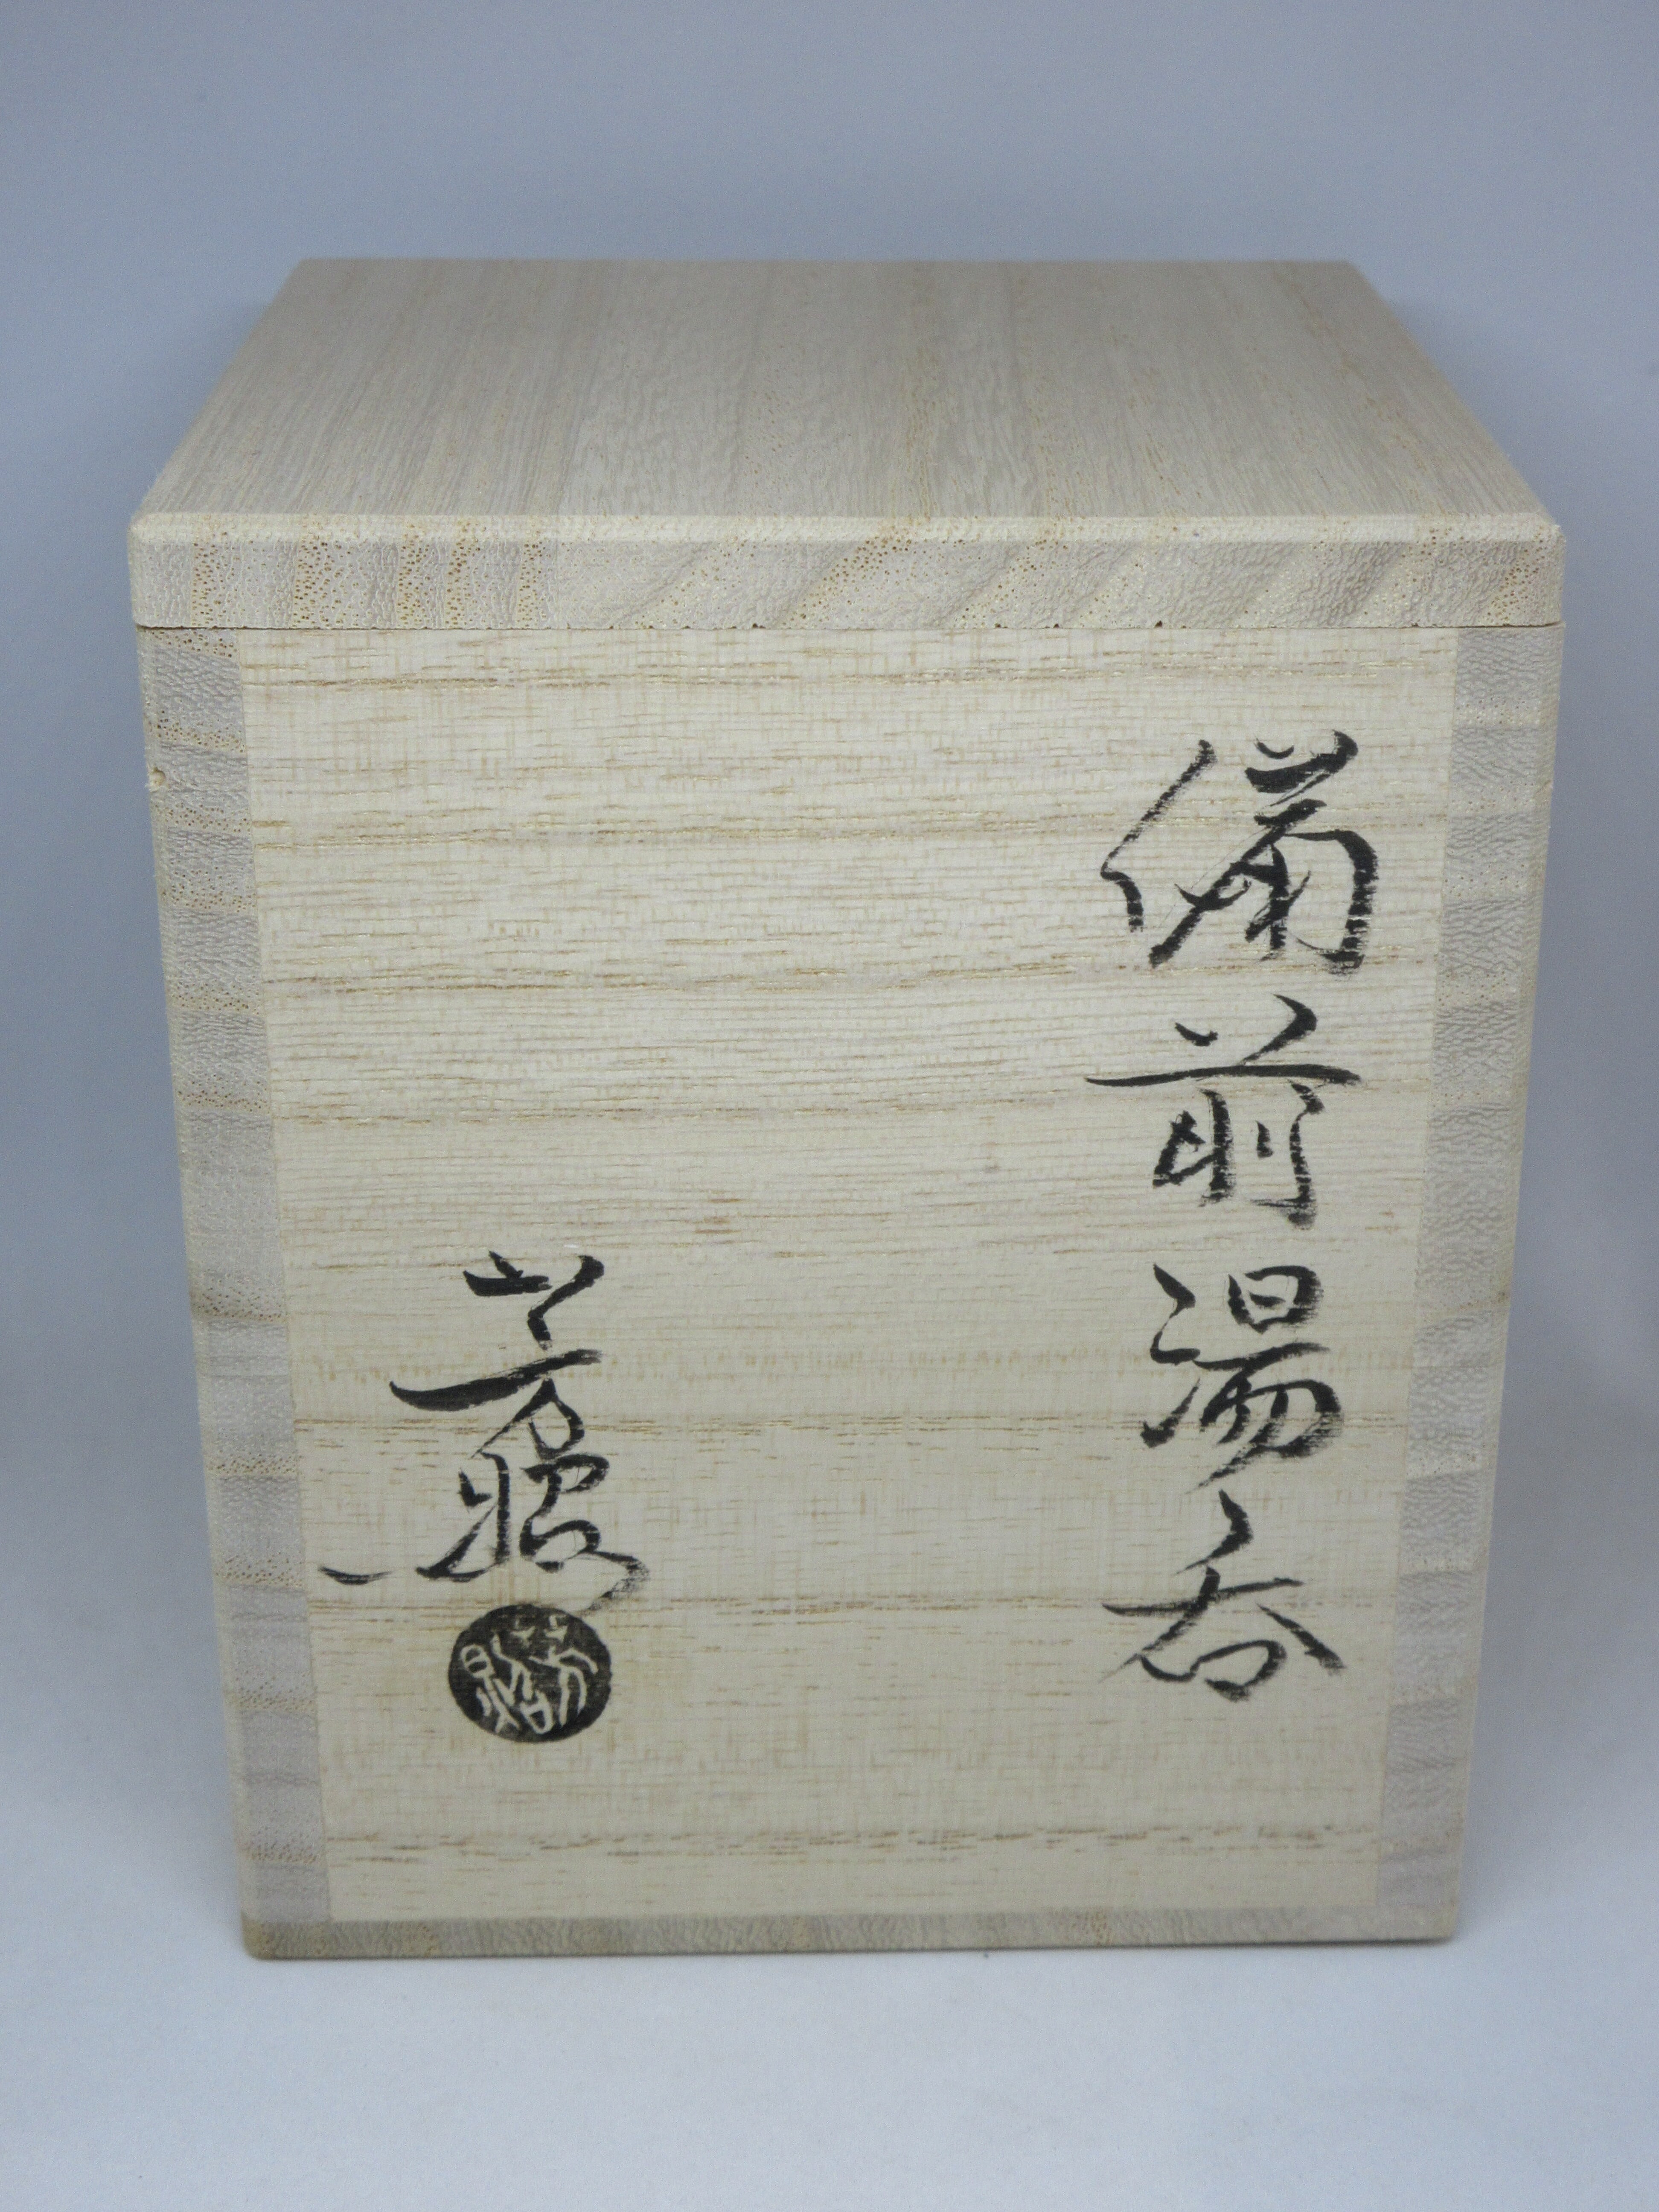 備前湯呑
芳昭